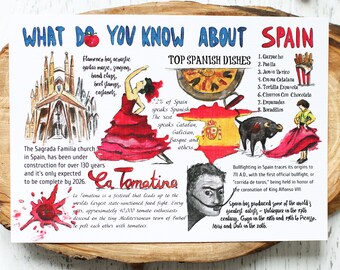 WHAT DO YOU KNOW ABOUT SPAIN
Flamenco has acoustic
guitar music, singing,
hand claps,
heel stomps,
castanets.
TOP SPANISH DISHES
1. Gazpacho
2. Paella
3. Jamón Ibérico
4. Crema Catalana
5. Tortilla Española
6. Churros Con Chocolate
7. Empanadas
8. Bocadillos
72% of Spain
speaks Spanish.
The rest
speaks Catalan,
Galician,
Basque and
others.
The Sagrada Familia church
in Spain, has been under
construction for over 130 years
and it's only expected
to be complete by 2026.
La Tomatina
La Tomatina is a festival that leads up to the
world's largest state-sanctioned food fight. Every
year, approximately 40,000 tomato enthusiasts
descend on the tiny Mediterranean town of Buñol
to pelt each other with tomatoes.
Bullfighting in Spain traces its origins to
711 A.D., with the first official bullfight, or
"corrida de toros," being held in honor of
the coronation of King Alfonso VIII.
Spain has produced some of the world's
greatest artists - Velázquez in the 17th
century, Goya in the 18th and 19th, to Picasso,
Miró and Dalí in the 20th.